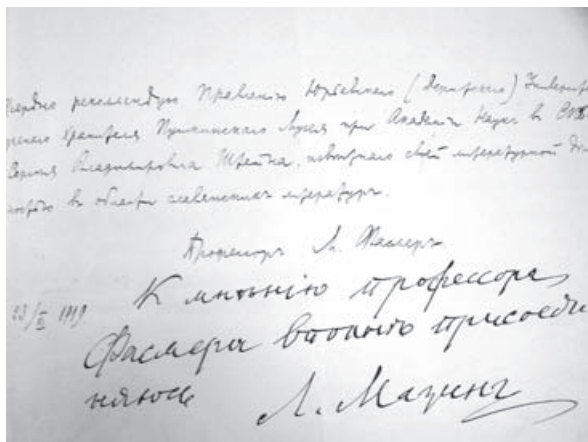 рекомендую Правленію Юрьевскаго (Дерптскаго)
Хранителя Пушкинскаго Музея при Академіи Наукъ въ
Сергѣя Владиміровича Штейна, извѣстнаго своей литературной
въ области славянскихъ литературъ.
Профессоръ М. Фасмеръ
К мнѣнію профессора
Фасмера вполнѣ присоеди
няюсь
Л. Мазинг